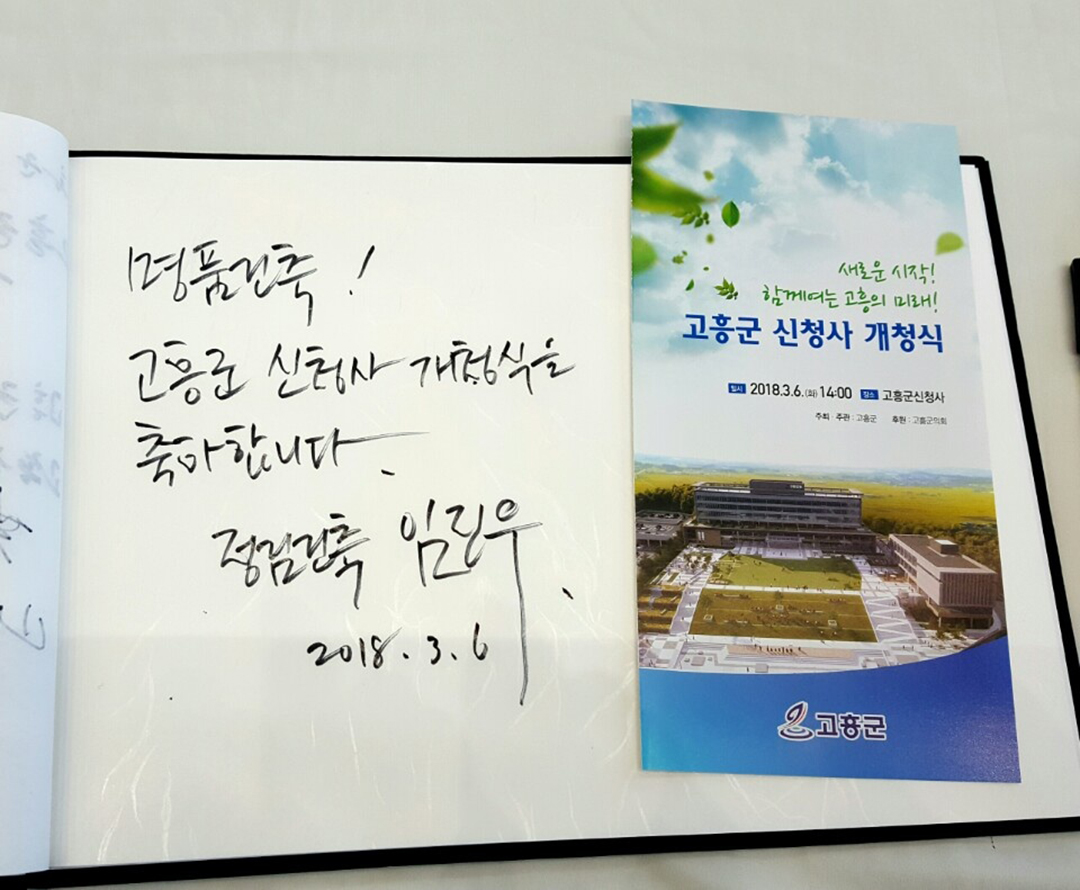 명품건축!
고흥군 신청사 개청식을
축하합니다.
정림건축 임진우
2018. 3. 6
새로운 시작!
함께여는 고흥의 미래!
고흥군 신청사 개청식
일시 2018.3.6.(화) 14:00 장소 고흥군신청사
주최·주관 : 고흥군 후원 : 고흥군의회
고흥군